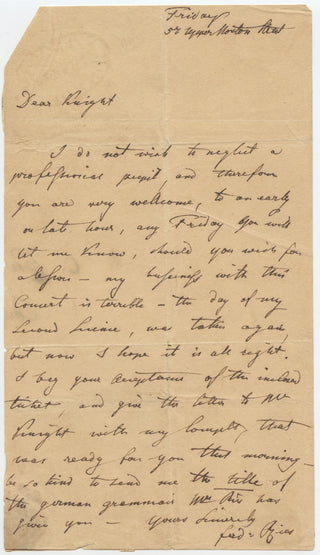 Friday
57 Upper Norton Street
Dear Knight
I do not wish to neglect a
professional pupil, and therefore
you are very wellcome, to an early
or late hour, any Friday you will
let me know, should you wish for
a lesson – my business with this
Concert is terrible – the day of my
was taken again,
but now I hope it is all right.
I beg your acceptance of the inclosed
ticket, and give the letter to Mr
Knight with my Compts, that
was ready for you that morning –
be so kind to send me the title of
the german grammair Mrs Ries has
given you – Yours Sincerely
Ferd: Ries